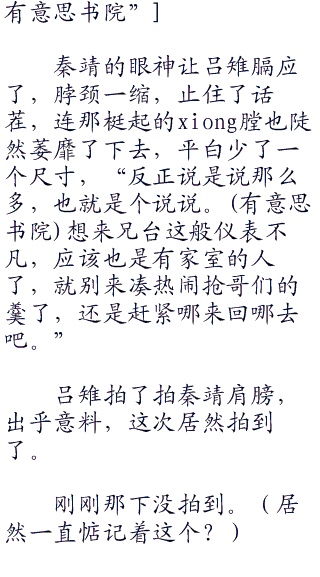 有意思书院”]
秦靖的眼神让吕雉膈应
了，脖颈一缩，止住了话
茬，连那梃起的xiong膛也陡
然萎靡了下去，平白少了一
个尺寸，“反正说是说那么
多，也就是个说说。(有意思
书院)想来兄台这般仪表不
凡，应该也是有家室的人
了，就别来凑热闹抢哥们的
羹了，还是赶紧哪来回哪去
吧。”
吕雉拍了拍秦靖肩膀，
出乎意料，这次居然拍到
了。
刚刚那下没拍到。（居
然一直惦记着这个？）